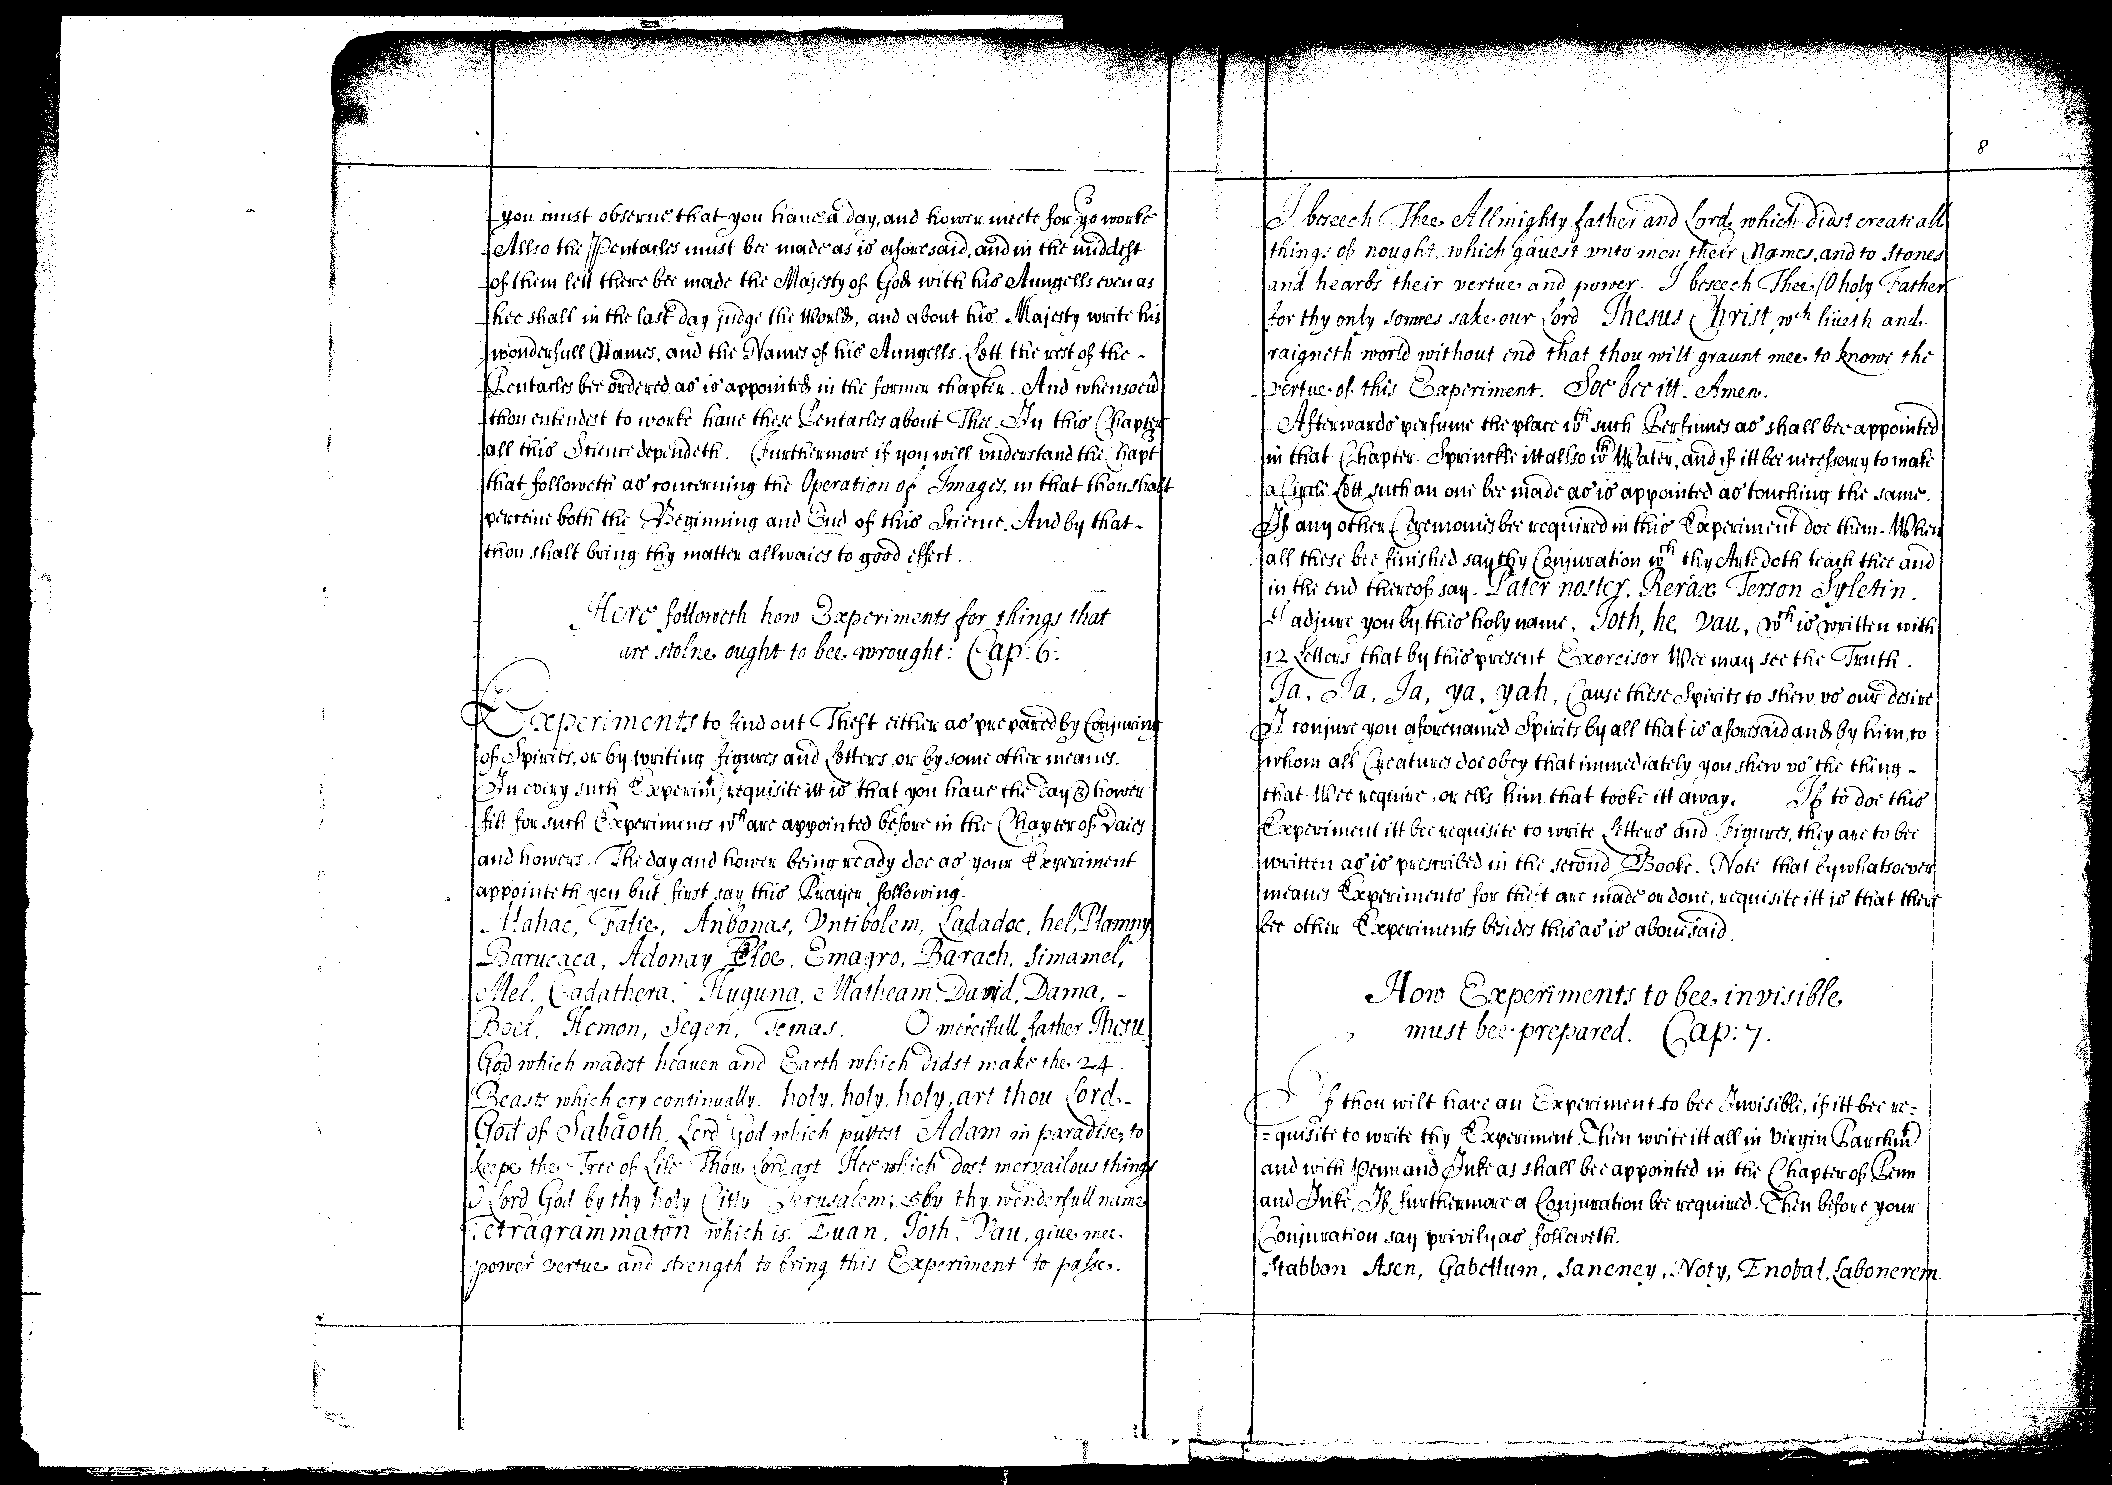 you must obserue that you haue a day, and hower meete for yo worke
Allso the Pentacles must bee made as is aforesaid, and in the middest
of them lett there bee made the Majesty of God with his Aungells even as
hee shall in the last day judge the World, and about his Majesty write his
wonderfull Names, and the Names of his Aungells. Lett the rest of the -
Pentacles bee ordered as is appointed in the former chapter. And whensoeu
thou entendest to worke haue these Pentacles about Thee. In this Chapter
all this Science dependeth. Furthermore if you will vnderstand the Chapt
that followeth as concerning the Operation of Images, in that thou shalt
perceiue both the Beginning and End of this Science. And by that -
thou shalt bring thy matter allwaies to good effect.
Here followeth how Experiments for things that
are stolne ought to bee wrought: Cap: 6:
Experiments to find out Theft either as prepared by Conjuring
of Spirits, or by writing figures and Letters, or by some other meanes.
In every such Experimt, requisite itt is that you haue the day & hower
fitt for such Experiments wch are appointed before in the Chapter of Daies
and howers. The day and hower being ready doe as your Experiment
appointeth you but first say this Prayer following.
Atahac, Falie, Anbonas, Vntibolem, Ladadoc, hel, Plamny
Barucaca, Adonay Eloe, Emagro, Barach, Simamel,
Mel. Cadathera. Huguna, Matheam David, Dama, -
Boel, Hemon, Segen, Temas. O mercifull father Ihesu
God which madest heauen and Earth which didst make the 24
Beasts which cry continually. holy, holy, holy, art thou Lord -
God of Sabaoth. Lord God which puttest Adam in paradise, to
keepe the Tree of Life Thou Lord art Hee which dost mervailous things
O Lord God by thy holy Citty Jerusalem, & by thy wonderfull name
Tetragrammaton which is. Euan, Joth, Vau, giue mee
power vertue and strength to bring this Experiment to passe.
8
I beseech Thee Allmighty father and Lord, which didst create all
things of nought, which gauest vnto men their Names, and to stones
and hearbs their vertue and power. I beseech Thee, O holy Father
for thy only sonnes sake our Lord Ihesus Christ, wch liueth and
raigneth world without end that thou wilt graunt mee to knowe the
vertue of this Experiment. Soe bee itt. Amen.
Afterwards perfume the place wth such Perfumes as shall bee appointed
in that Chapter. Sprinckle itt allso wth Water, and if itt bee necessary to make
a Circle Lett such an one bee made as is appointed as touching the same.
If any other Ceremonies bee required in this Experiment doe them. When
all these bee finished say thy Conjuration wch thy Arte doth teach thee and
in the end thereof say. Pater noster. Rerax Terson Syletin.
I adjure you by this holy name, Joth, he, Vau, wch is written with
12 Letters that by this present Exorcisor Wee may see the Truth.
Ja, Ja, Ja, ya, yah, Cause these Spirits to shew vs our desire
I conjure you aforenamed Spirits by all that is aforesaid and by him, to
whom all Creatures doe obey that immediately you shew vs the thing -
that Wee require, or ells him that tooke itt away. If to doe this
Experiment itt bee requisite to write Letters and Figures, they are to bee
written as is prescribed in the second Booke. Note that by whatsoever
meanes Experiments for theft are made or done, requisite itt is that there
bee other Experiments besides this as is abouesaid.
How Experiments to bee invisible
must bee prepared. Cap: 7.
If thou wilt haue an Experiment to bee Invisible, if itt bee re-
-quisite to write thy Experiment, Then write itt all in Virgin Parchmt
and with Penn and Inke as shall bee appointed in the Chapter of Penn
and Inke, If furthermore a Conjuration bee required. Then before your
Conjuration say privily as followeth.
Stabbon Asen, Gabellum, Saneney, Noty, Enobal, Labonerem